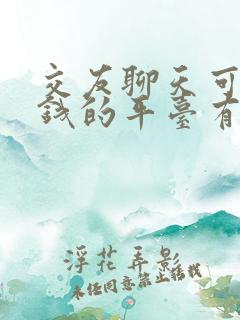 交友聊天可
錢的平臺有
浮花弄影
未经同意禁止转载